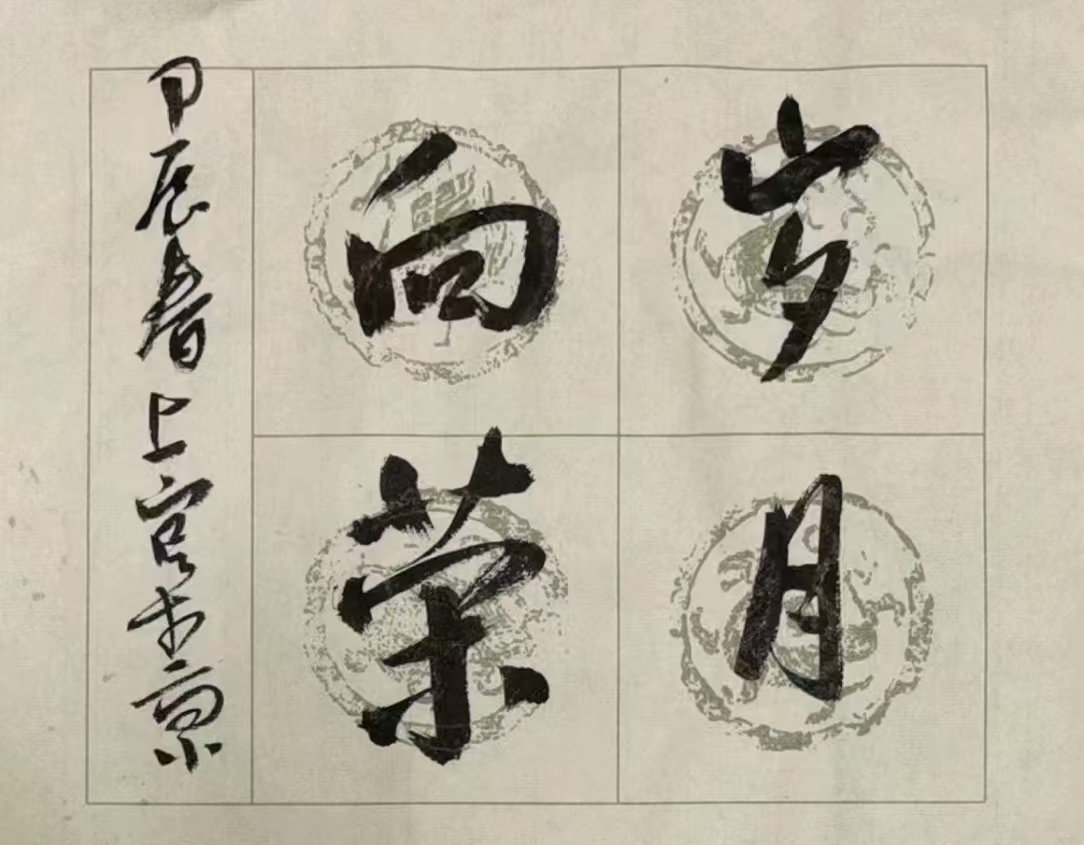 岁月
向荣
甲辰春上官京